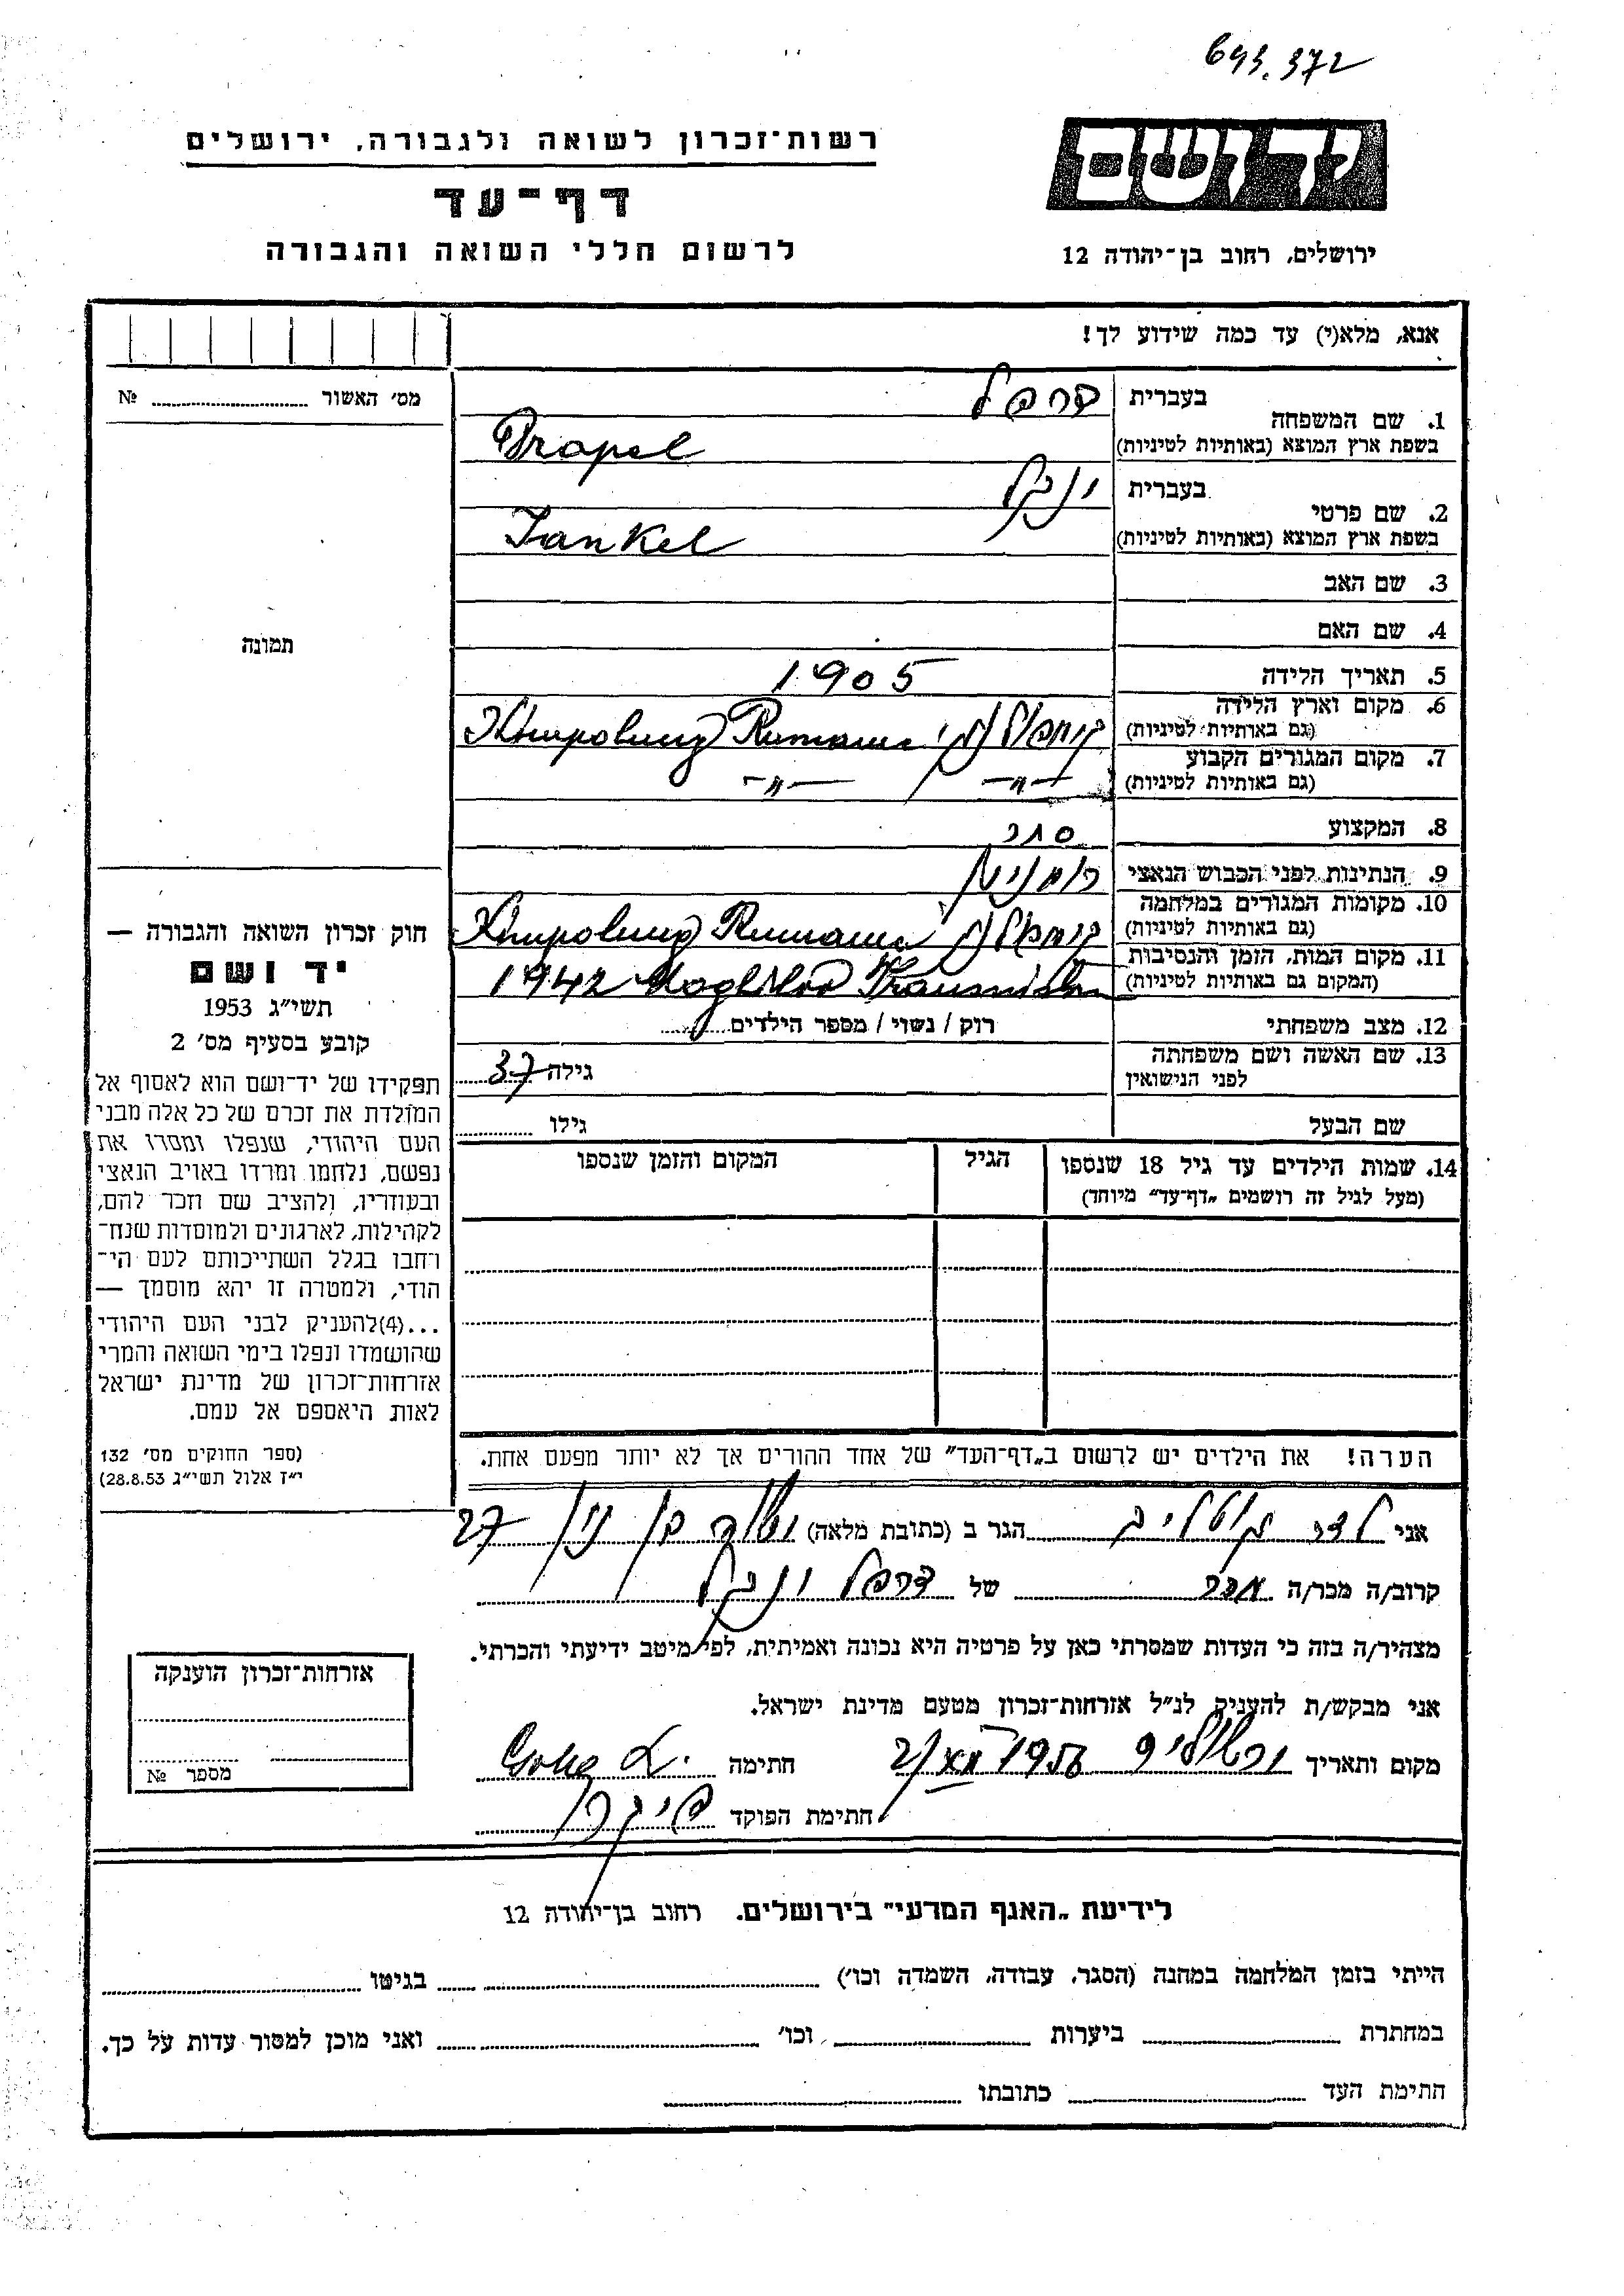 693.372
יד ושם
רשות־זכרון לשואה ולגבורה, ירושלים
דף־עד
לרשום חללי השואה והגבורה
ירושלים, רחוב בן־יהודה 12
אנא, מלא(י) עד כמה שידוע לך!
מס' האשור № 
1. שם המשפחה
בעברית דרפל
בשפת ארץ המוצא (באותיות לטיניות) Drapel
2. שם פרטי
בעברית ינקל
בשפת ארץ המוצא (באותיות לטיניות) Iankel
3. שם האב
4. שם האם
תמונה
5. תאריך הלידה 1905
6. מקום וארץ הלידה
(גם באותיות לטיניות) Rumania
7. מקום המגורים הקבוע
(גם באותיות לטיניות) —"— —"—
8. המקצוע
9. הנתינות לפני הכבוש הנאצי
10. מקומות המגורים במלחמה
(גם באותיות לטיניות) Rumania
11. מקום המות, הזמן והנסיבות
(המקום גם באותיות לטיניות) 1942 Moghilov
12. מצב משפחתי רוק / נשוי / מספר הילדים
13. שם האשה ושם משפחתה
לפני הנישואין גילה 37
שם הבעל גילו
14. שמות הילדים עד גיל 18 שנספו הגיל המקום והזמן שנספו
(מעל לגיל זה רושמים „דף־עד" מיוחד)
הערה! את הילדים יש לרשום ב„דף־העד" של אחד ההורים אך לא יותר מפעם אחת.
חוק זכרון השואה והגבורה —
יד ושם
תשי"ג 1953
קובע בסעיף מס' 2
תפקידו של יד־ושם הוא לאסוף אל
המולדת את זכרם של כל אלה מבני
העם היהודי, שנפלו ומסרו את
נפשם, נלחמו ומרדו באויב הנאצי
ובעוזריו, ולהציב שם וזכר להם,
לקהילות, לארגונים ולמוסדות שנח־
רחבו בגלל השתייכותם לעם הי־
הודי, ולמטרה זו יהא מוסמך —
...(4)להעניק לבני העם היהודי
שהושמדו ונפלו בימי השואה והמרי
אזרחות־זכרון של מדינת ישראל
לאות היאספם אל עמם.
(ספר החוקים מס' 132
י"ז אלול תשי"ג 28.8.53)
אני הגר ב (כתובת מלאה) 27
קרוב/ה מכר/ה מכר של דרפל ינקל
מצהיר/ה בזה כי העדות שמסרתי כאן על פרטיה היא נכונה ואמיתית, לפי מיטב ידיעתי והכרתי.
אני מבקש/ת להעניק לנ"ל אזרחות־זכרון מטעם מדינת ישראל.
מקום ותאריך ירושלים חתימה
חתימת הפוקד
אזרחות־זכרון הוענקה
מספר №
לידיעת „האגף המדעי" בירושלים. רחוב בן־יהודה 12
הייתי בזמן המלחמה במחנה (הסגר, עבודה, השמדה וכו') בגיטו
במחתרת ביערות וכו' ואני מוכן למסור עדות על כך.
חתימת העד כתובתו